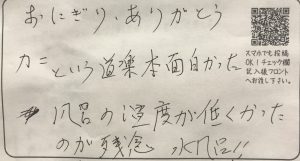 おにぎり、ありがとう
カニという道楽本面白かった
風呂の温度が低くかった
のが残念 水風呂!!
スマホでも投稿
OK!チェック欄
記入後フロント
へお渡し下さい。